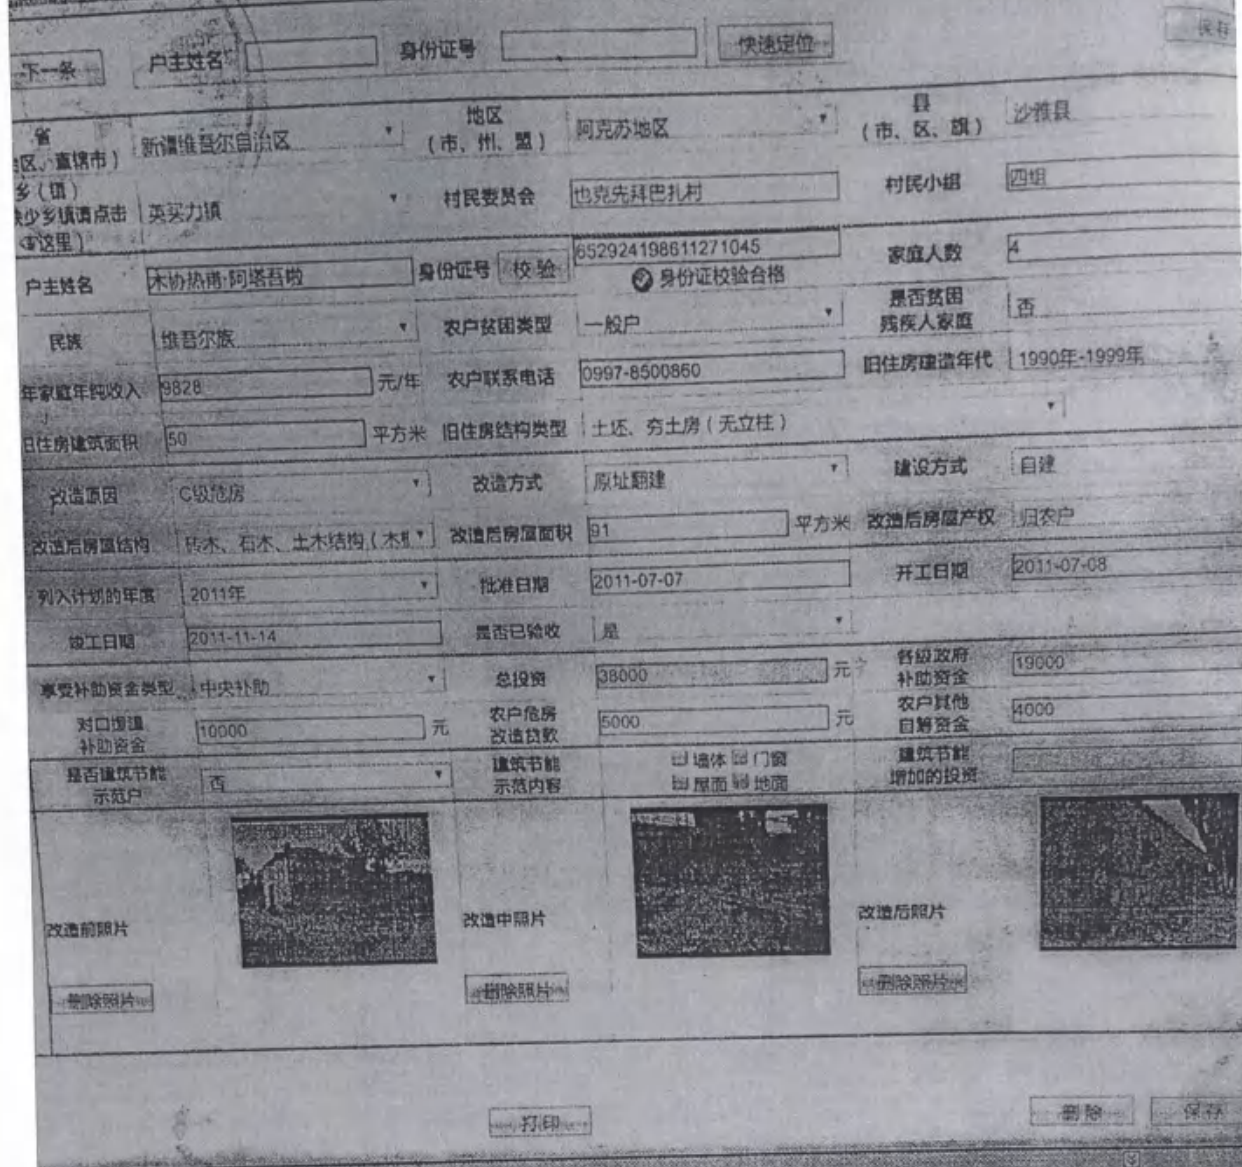 下一条 户主姓名 身份证号 快速定位 保存
省 地区 县
区、直辖市） 新疆维吾尔自治区 （市、州、盟） 阿克苏地区 （市、区、旗） 沙雅县
乡（镇）
缺少乡镇请点击 英买力镇 村民委员会 也克先拜巴扎村 村民小组 四组
这里）
户主姓名 木沙热提·阿塔吾啦 身份证号 校 验 652924198611271045 家庭人数 4
身份证校验合格
民族 维吾尔族 农户贫困类型 一般户 是否贫困 否
残疾人家庭
年家庭年纯收入 9828 元/年 农户联系电话 0997-8500860 旧住房建造年代 1990年-1999年
旧住房建筑面积 50 平方米 旧住房结构类型 土坯、夯土房（无立柱）
改造原因 C级危房 改造方式 原址翻建 建设方式 自建
改造后房屋结构 砖木、石木、土木结构（木 改造后房屋面积 91 平方米 改造后房屋产权 归农户
列入计划的年度 2011年 批准日期 2011-07-07 开工日期 2011-07-08
竣工日期 2011-11-14 是否已验收 是
享受补助资金类型 中央补助 总投资 38000 元 各级政府 19000
补助资金
对口援疆 10000 元 农户危房 5000 元 农户其他 4000
补助资金 改造贷款 自筹资金
是否建筑节能 否 建筑节能 墙体 门窗 建筑节能
示范户 示范内容 屋面 地面 增加的投资
改造前照片 改造中照片 改造后照片
删除照片 删除照片 删除照片
打印 删除 保存